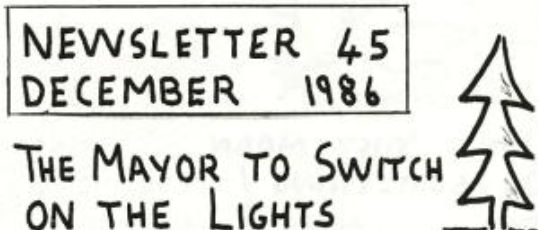 NEWSLETTER 45
DECEMBER 1986
THE MAYOR TO SWITCH
ON THE LIGHTS